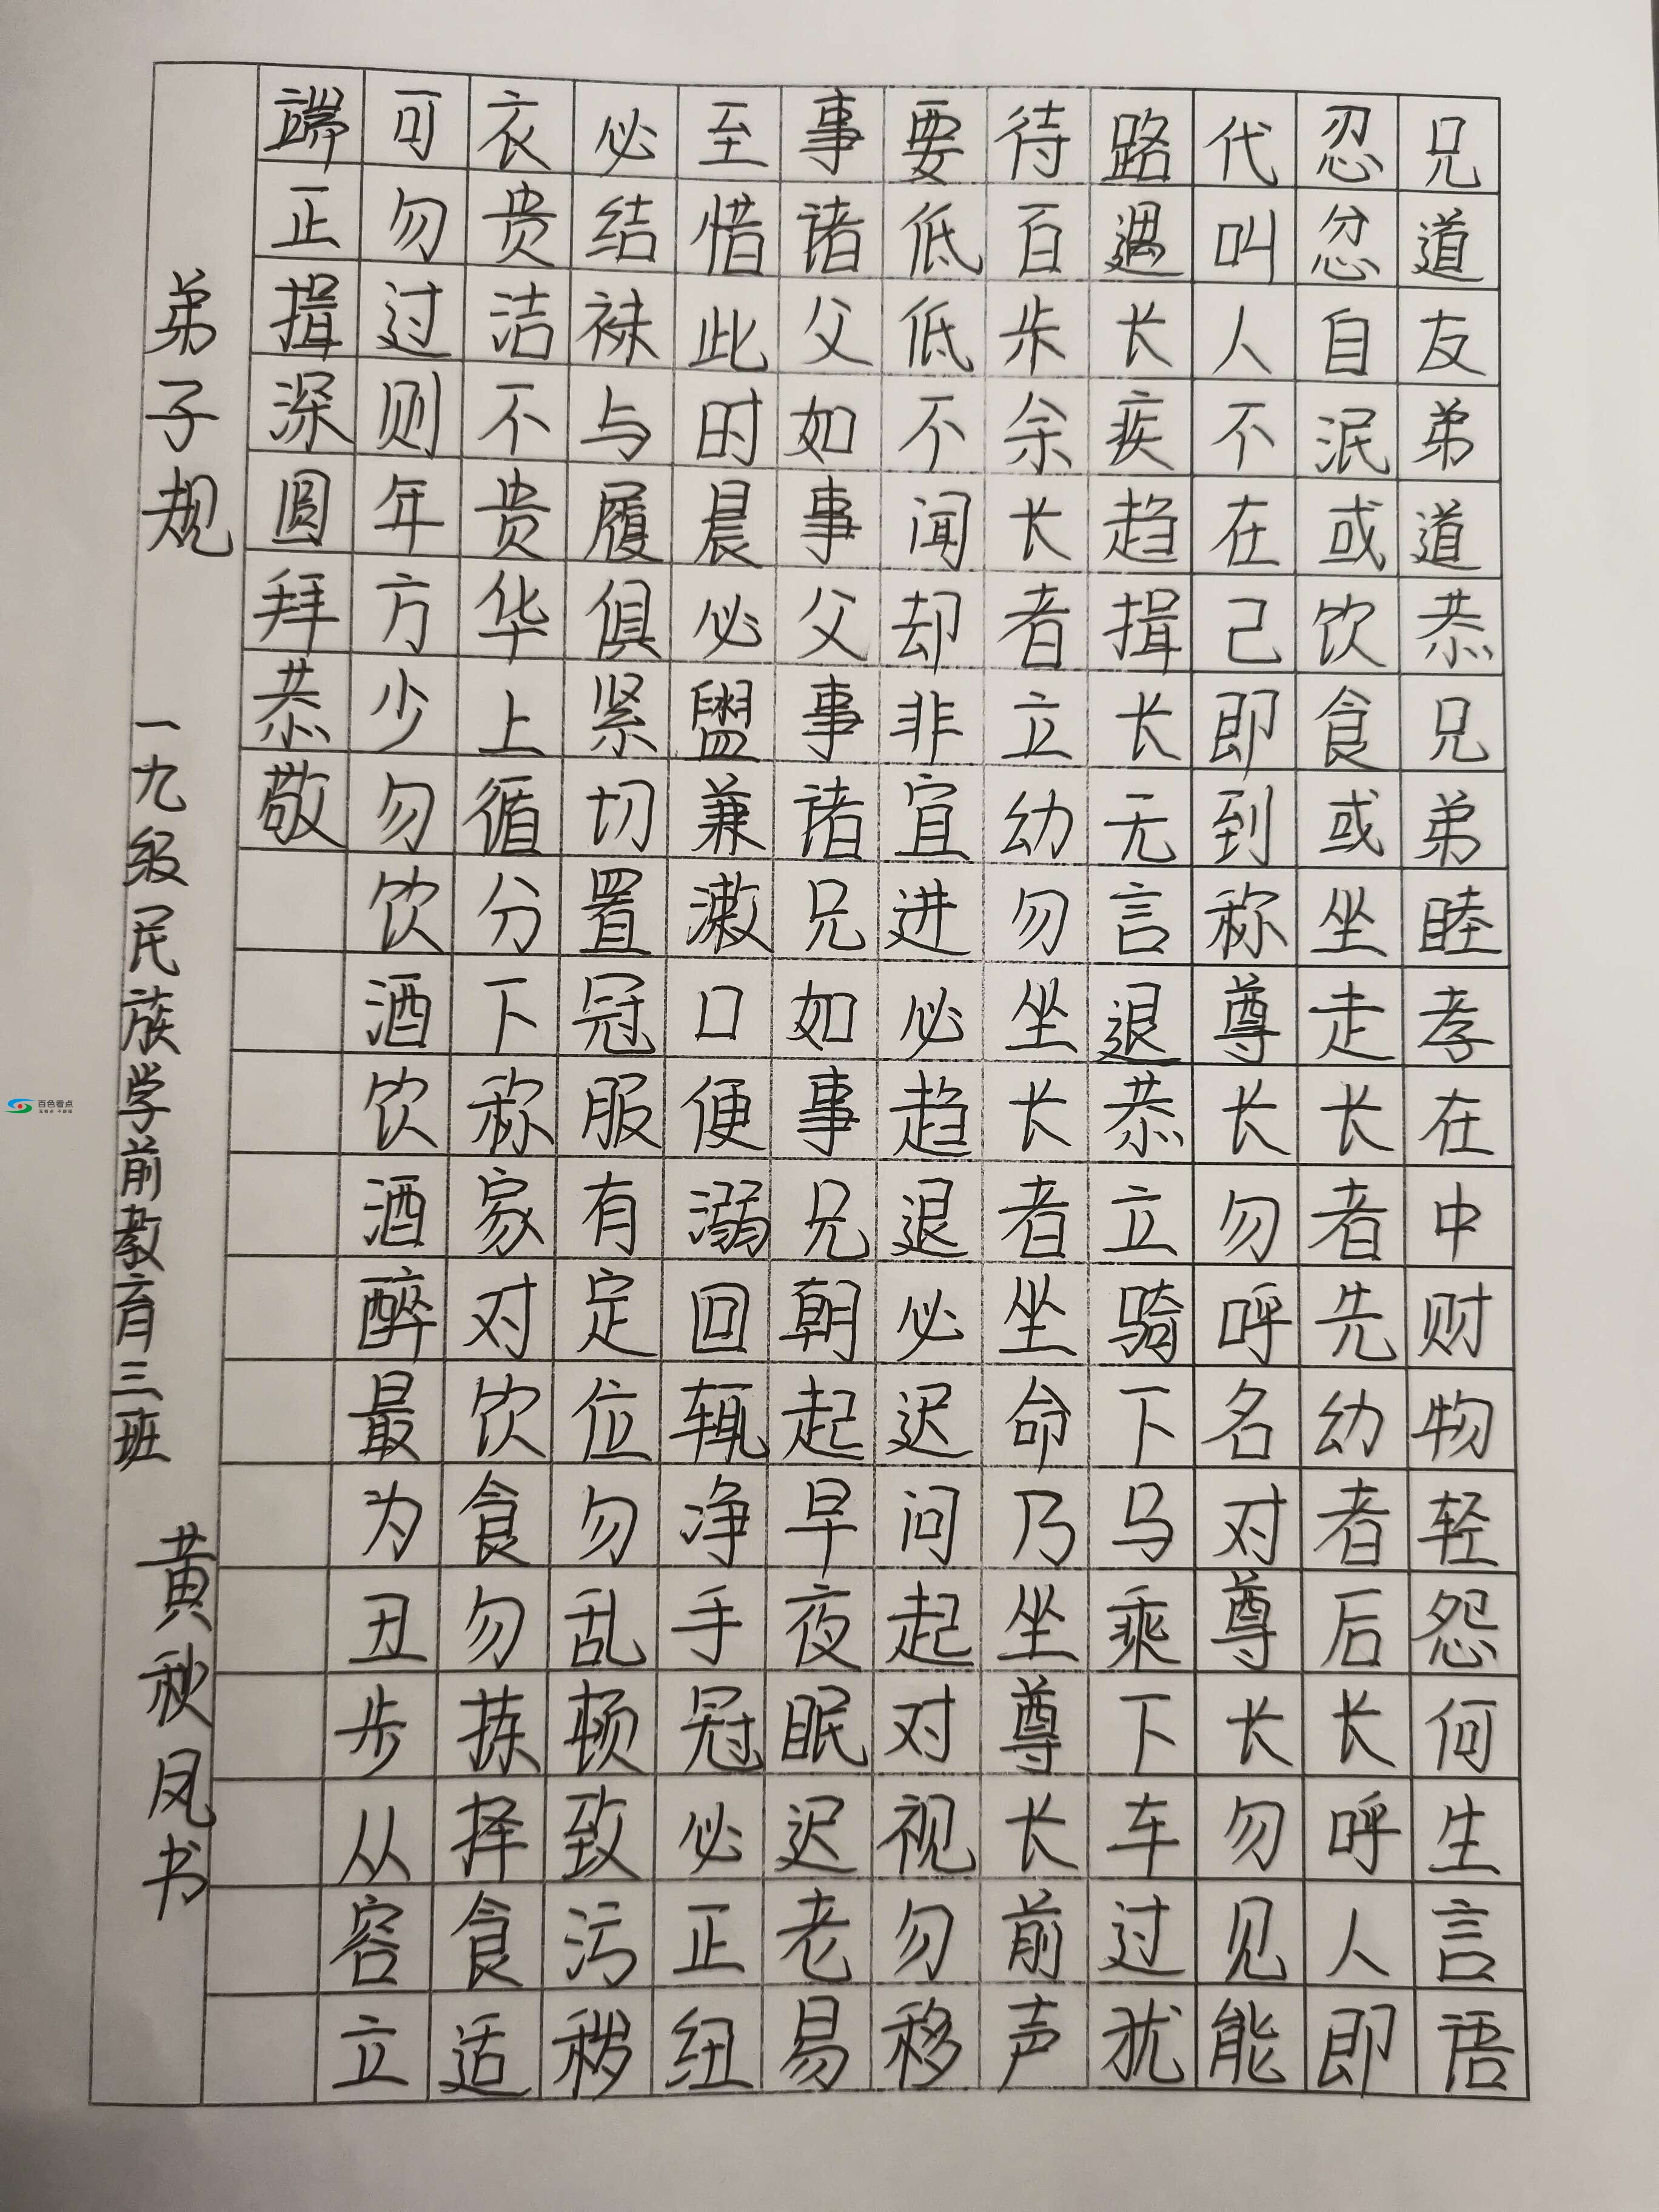 兄道友弟道恭兄弟睦孝在中财物轻怨何生言语
忍忿自泯或饮食或坐走长者先幼者后长呼人即
代叫人不在己即到称尊长勿呼名对尊长勿见能
路遇长疾趋揖长无言退恭立骑下马乘下车过犹
待百步余长者立幼勿坐长者坐命乃坐尊长前声
要低低不闻却非宜进必趋退必迟问起对视勿移
事诸父如事父事诸兄如事兄朝起早夜眠迟老易
至惜此时晨必盥兼漱口便溺回辄净手冠必正纽
必结袜与履俱紧切置冠服有定位勿乱顿致污秽
衣贵洁不贵华上循分下称家对饮食勿拣择食适
可勿过则年方少勿饮酒饮酒醉最为丑步从容立
端正揖深圆拜恭敬
弟子规 一九级民族学前教育三班 黄秋凤书
百色看点